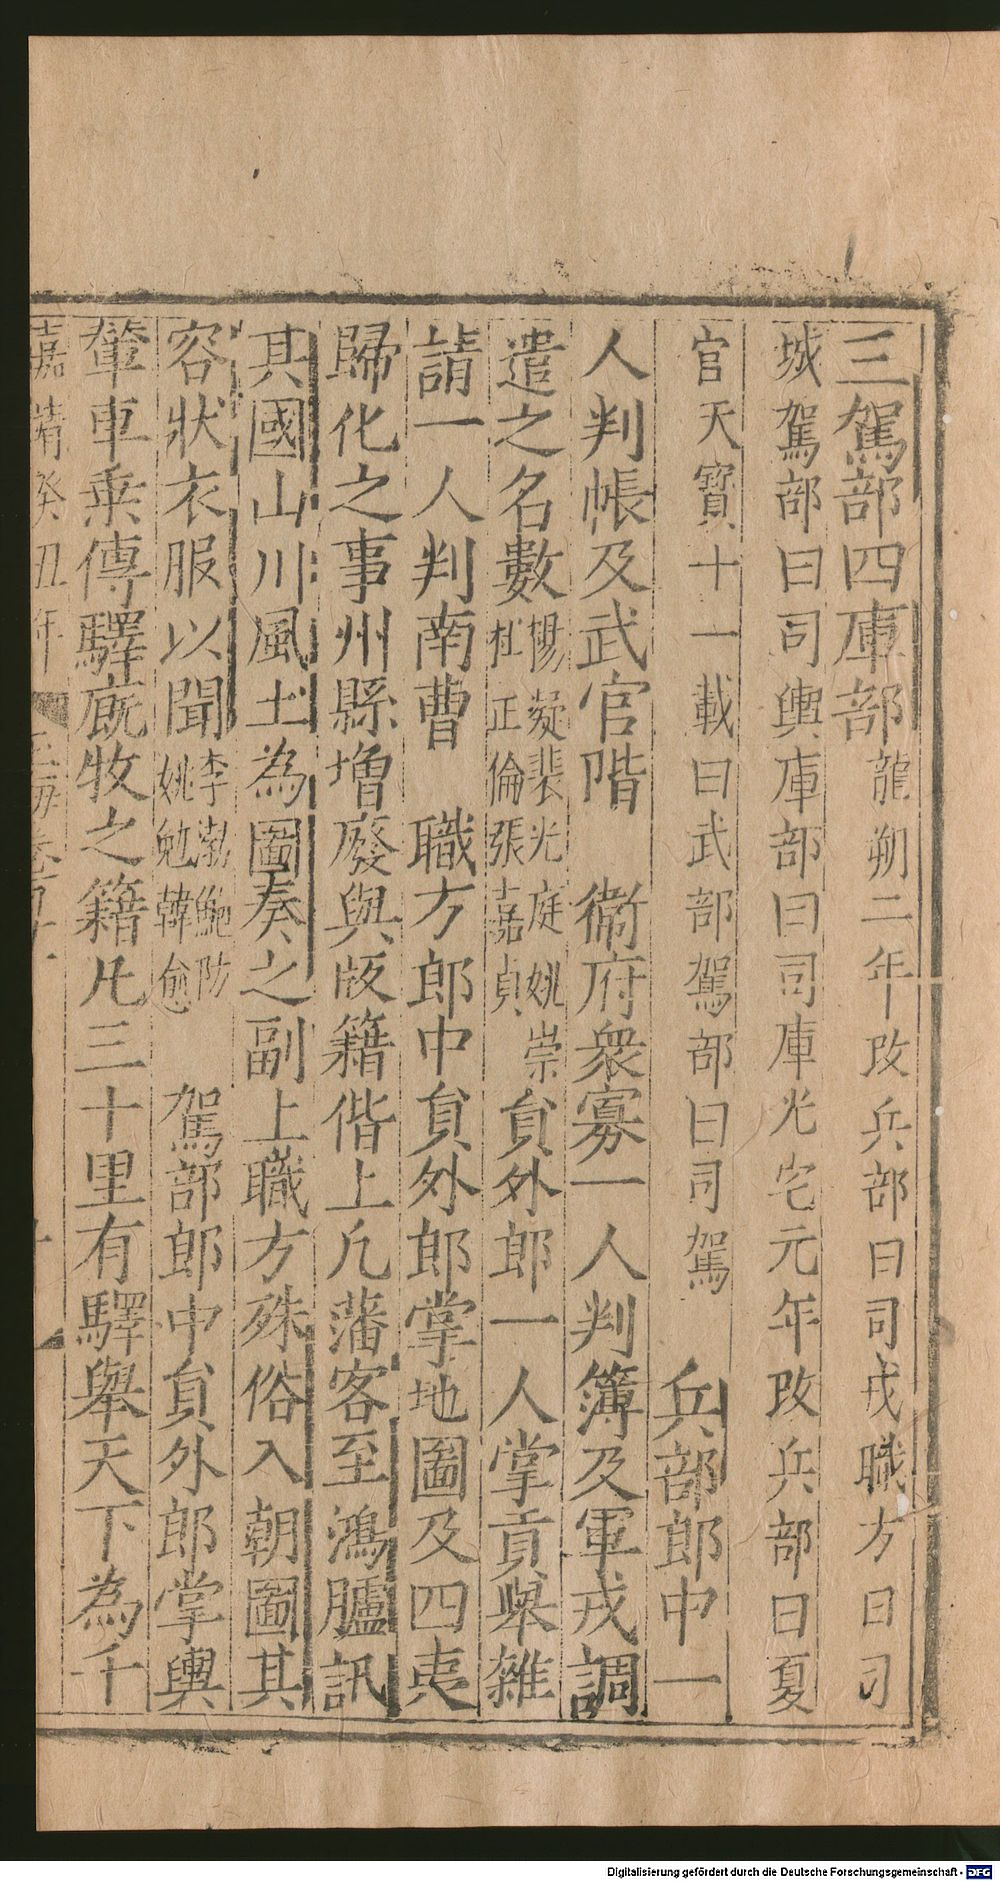 三駕部四庫部龍朔二年改兵部曰司戎職方曰司
城駕部曰司輿庫部曰司庫光宅元年改兵部曰夏
官天寶十一載曰武部駕部曰司駕　兵部郎中一
人判帳及武官階　衛府衆寡一人判簿及軍戎調
遣之名數楊凝裴光庭姚崇
杜正倫張嘉貞
貟外郎一人掌貢舉雜
請一人判南曹　職方郎中貟外郎掌地圖及四夷
歸化之事州縣增廢與版籍偕上凡藩客至鴻臚訊
其國山川風土為圖奏之副上職方殊俗入朝圖其
容狀衣服以聞李渤鮑防
姚勉韓愈
駕部郎中貟外郎掌輿
輦車乗傳驛厩牧之籍凡三十里有驛舉天下為千
嘉靖癸丑年
Digitalisierung gefördert durch die Deutsche Forschungsgemeinschaft - DFG